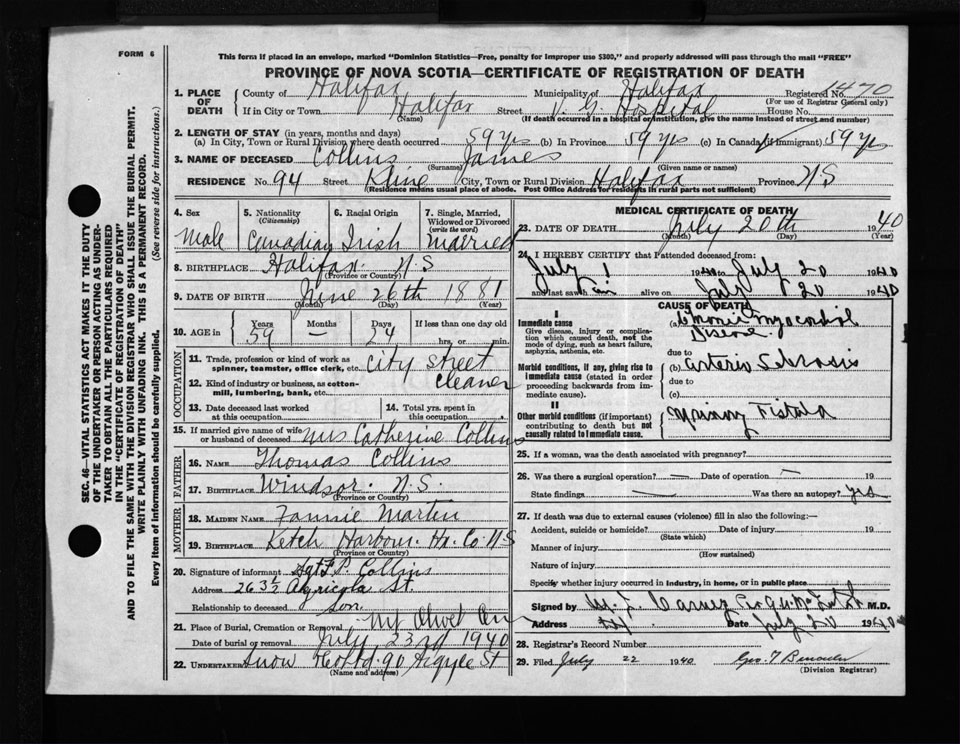 FORM 6
This form if placed in an envelope, marked "Dominion Statistics—Free, penalty for improper use $300," and properly addressed will pass through the mail "FREE"
PROVINCE OF NOVA SCOTIA—CERTIFICATE OF REGISTRATION OF DEATH
SEC. 46—VITAL STATISTICS ACT MAKES IT THE DUTY
OF THE UNDERTAKER OR PERSON ACTING AS UNDER-
TAKER TO OBTAIN ALL THE PARTICULARS REQUIRED
IN THE "CERTIFICATE OF REGISTRATION OF DEATH"
AND TO FILE THE SAME WITH THE DIVISION REGISTRAR WHO SHALL ISSUE THE BURIAL PERMIT.
WRITE PLAINLY WITH UNFADING INK. THIS IS A PERMANENT RECORD.
Every item of information should be carefully supplied. (See reverse side for instructions.)
1. PLACE OF DEATH County of Halifax Municipality of Halifax Registered No. 1470
(For use of Registrar General only)
If in City or Town Halifax Street V. G. Hospital House No.
(Name) (If death occurred in a hospital or institution, give the name instead of street and number)
2. LENGTH OF STAY (in years, months and days)
(a) In City, Town or Rural Division where death occurred 59 yrs (b) In Province 59 yrs (c) In Canada (if immigrant) 59 yrs
3. NAME OF DECEASED Collins James
(Surname) (Given name or names)
RESIDENCE No. 94 Street Kline City, Town or Rural Division Halifax Province N S
(Residence means usual place of abode. Post Office Address for residents in rural parts not sufficient)
4. Sex Male
5. Nationality (Citizenship) Canadian
6. Racial Origin Irish
7. Single, Married, Widowed or Divorced (write the word) Married
8. BIRTHPLACE Halifax N.S.
(Province or Country)
9. DATE OF BIRTH June 26th 1881
(Month) (Day) (Year)
10. AGE in Years 59 Months — Days 24 If less than one day old
hrs. or min.
OCCUPATION
11. Trade, profession or kind of work as spinner, teamster, office clerk, etc. City Street
12. Kind of industry or business, as cotton-mill, lumbering, bank, etc. cleaner
13. Date deceased last worked at this occupation
14. Total yrs. spent in this occupation
15. If married give name of wife or husband of deceased Mrs Catherine Collins
FATHER
16. NAME Thomas Collins
17. BIRTHPLACE Windsor. N.S.
(Province or Country)
MOTHER
18. MAIDEN NAME Fannie Martin
19. BIRTHPLACE Ketch Harbour. Hx. Co. N S
(Province or Country)
20. Signature of informant Sgt F. P. Collins
Address 263½ Agricola St.
Relationship to deceased son.
21. Place of Burial, Cremation or Removal Mt Olivet Cem
Date of burial or removal July 23rd 1940
22. UNDERTAKER Snow & Co Ltd. 90 Argyle St
(Name and address)
MEDICAL CERTIFICATE OF DEATH
23. DATE OF DEATH July 20th 1940
(Month) (Day) (Year)
24. I HEREBY CERTIFY that I attended deceased from:
July 1 1940 to July 20 1940
and last saw h im alive on July 20 1940
CAUSE OF DEATH
I
Immediate cause
Give disease, injury or complication which caused death, not the mode of dying, such as heart failure, asphyxia, asthenia, etc.
(a) Chronic Myocardial Disease
due to
Morbid conditions, if any, giving rise to immediate cause (stated in order proceeding backwards from immediate cause).
(b) Arterio Sclerosis
due to
(c)
II
Other morbid conditions (if important) contributing to death but not causally related to immediate cause.
Urinary Fistula
25. If a woman, was the death associated with pregnancy?
26. Was there a surgical operation? — Date of operation — 19
State findings — Was there an autopsy? yes
27. If death was due to external causes (violence) fill in also the following:—
Accident, suicide or homicide? Date of injury 19
(State which)
Manner of injury
(How sustained)
Nature of injury
Specify whether injury occurred in industry, in home, or in public place
Signed by M.D.
Address Date July 20 1940
28. Registrar's Record Number
29. Filed July 22 1940 Geo. T
(Division Registrar)